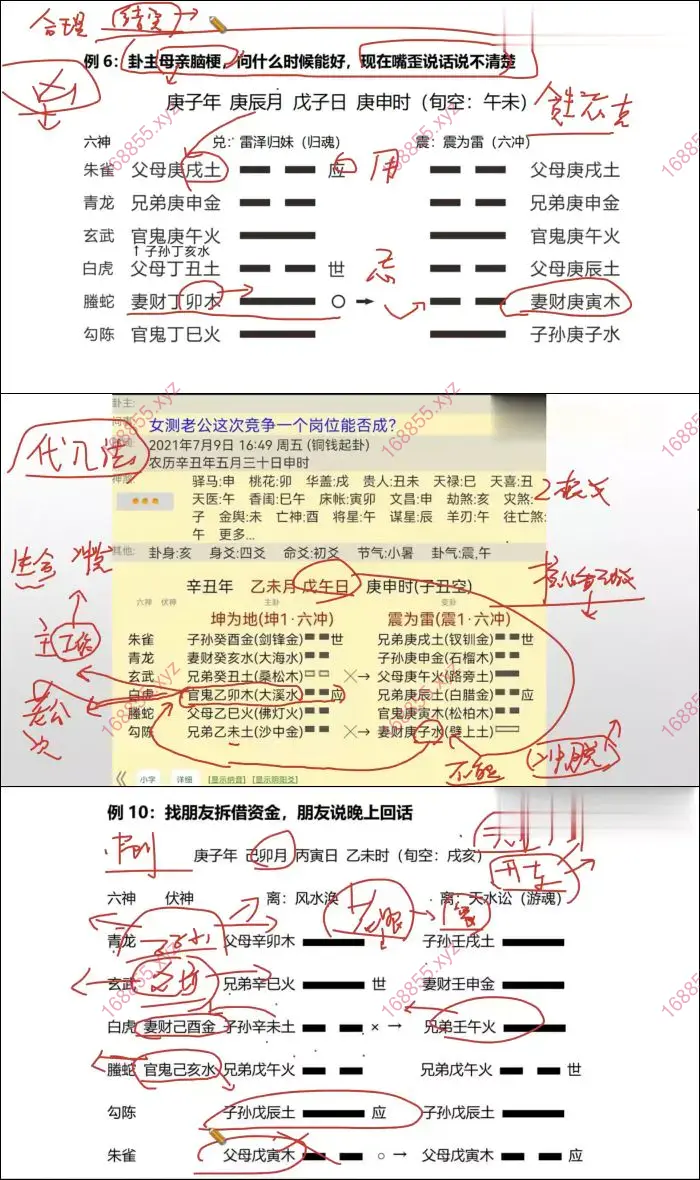 合理
例 6：卦主母亲脑梗，问什么时候能好，现在嘴歪说话说不清楚
凶
庚子年 庚辰月 戊子日 庚申时（旬空：午未）
六神 兑：雷泽归妹（归魂） 震：震为雷（六冲）
朱雀 父母庚戌土 应 用 父母庚戌土
青龙 兄弟庚申金 兄弟庚申金
玄武 官鬼庚午火 官鬼庚午火
↑子孙丁亥水
白虎 父母丁丑土 世 忌 父母庚辰土
螣蛇 妻财丁卯木 ○→ 妻财庚寅木
勾陈 官鬼丁巳火 子孙庚子水
168855.xyz
168855.xyz
168855.xyz
168855.xyz
卦主:
女测老公这次竞争一个岗位能否成?
2021年7月9日 16:49 周五 (铜钱起卦)
农历辛丑年五月三十日申时
代入法
驿马:申 桃花:卯 华盖:戌 贵人:丑未 天禄:巳 天喜:丑
天医:午 香闺:巳午 床帐:寅卯 文昌:申 劫煞:亥 灾煞:
子 金舆:未 亡神:酉 将星:午 谋星:辰 羊刃:午 往亡煞:
午 更多...
其他: 卦身:亥 身爻:四爻 命爻:初爻 节气:小暑 卦气:震,午
辛丑年 乙未月 戊午日 庚申时(子丑空)
六神 伏神 主卦 变卦
坤为地(坤1·六冲) 震为雷(震1·六冲)
朱雀 子孙癸酉金(剑锋金) 世 兄弟庚戌土(钗钏金) 世
青龙 妻财癸亥水(大海水) 子孙庚申金(石榴木)
玄武 兄弟癸丑土(桑松木) ╳→ 父母庚午火(路旁土)
白虎 官鬼乙卯木(大溪水) 应 兄弟庚辰土(白腊金) 应
螣蛇 父母乙巳火(佛灯火) 官鬼庚寅木(松柏木)
勾陈 兄弟乙未土(沙中金) ╳→ 妻财庚子水(壁上土)
老公
不能
小字 详细 [显示纳音] [显示阴阳爻]
168855.xyz
168855.xyz
168855.xyz
168855.xyz
例 10：找朋友拆借资金，朋友说晚上回话
庚子年 己卯月 丙寅日 乙未时（旬空：戌亥）
开车
六神 伏神 离：风水涣 离：天水讼（游魂）
青龙 父母辛卯木 子孙壬戌土
玄武 兄弟辛巳火 世 妻财壬申金
白虎 妻财己酉金 子孙辛未土 ×→ 兄弟壬午火
螣蛇 官鬼己亥水 兄弟戊午火 兄弟戊午火 世
勾陈 子孙戊辰土 应 子孙戊辰土
朱雀 父母戊寅木 ○→ 父母戊寅木 应
168855.xyz
168855.xyz
168855.xyz
168855.xyz